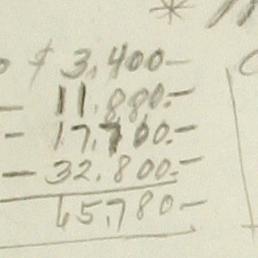 $ 3,400—
— 11.880.—
— 17,700.—
— 32.800.—
65,780—